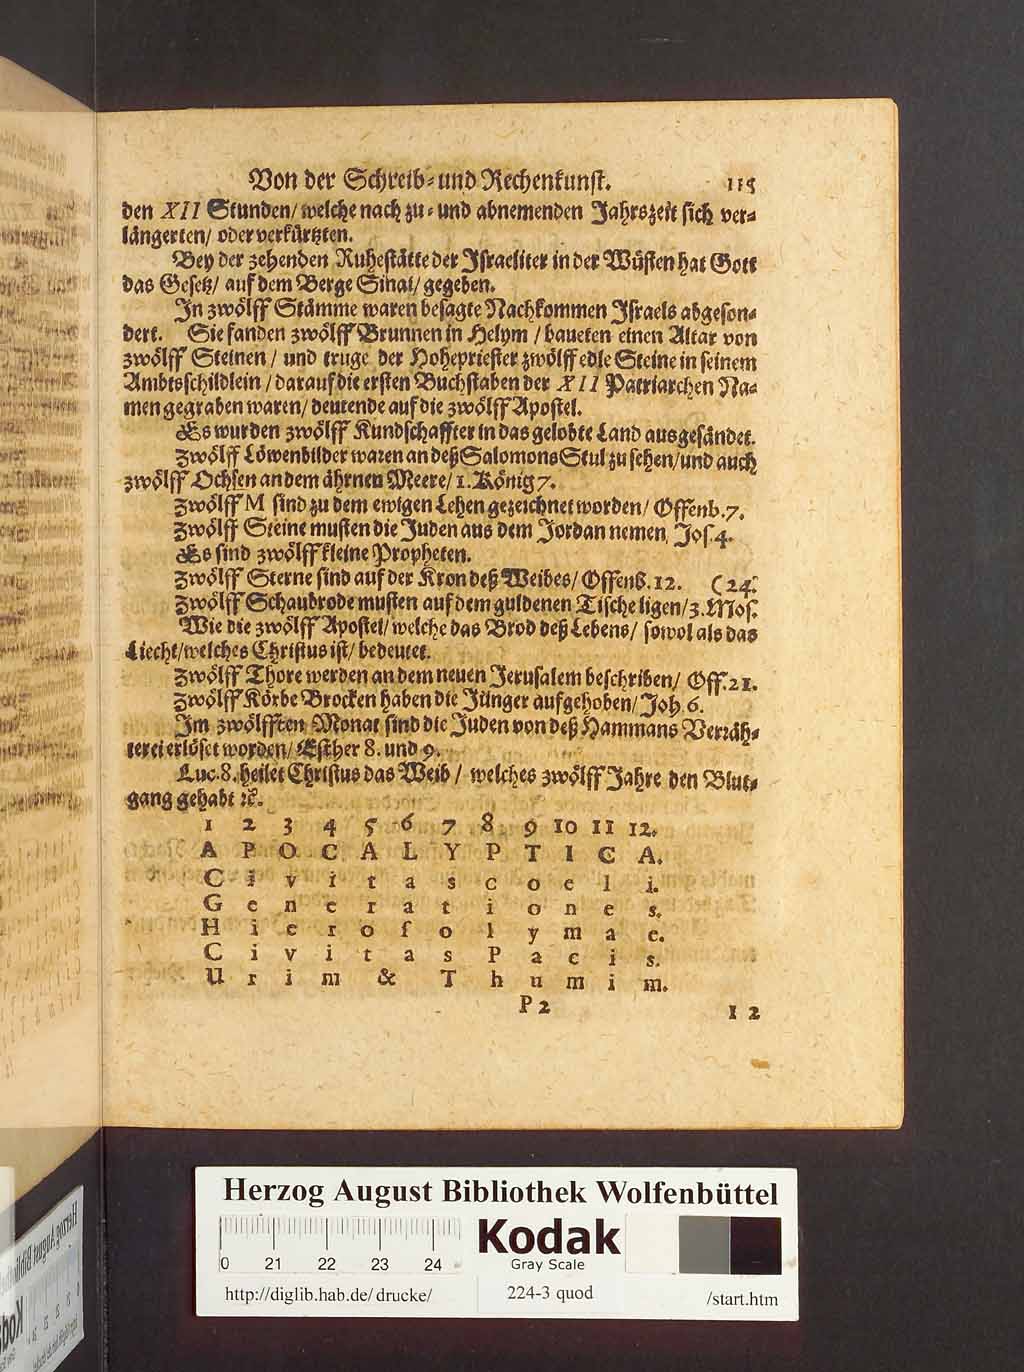 Von der Schreib- und Rechenkunst. 115
den XII Stunden/ welche nach zu- und abnemenden Jahrszeit sich ver-
längerten/ oder verkürtzten.
Bey der zehenden Ruhestätte der Israeliter in der Wüsten hat Gott
das Gesetz/ auf dem Berge Sinai/ gegeben.
In zwölff Stämme waren besagte Nachkommen Israels abgeson-
dert. Sie fanden zwölff Brunnen in Helym / baueten einen Altar von
zwölff Steinen / und truge der Hohepriester zwölff edle Steine in seinem
Ambtsschildlein / darauf die ersten Buchstaben der XII Patriarchen Na-
men gegraben waren/ deutende auf die zwölff Apostel.
Es wurden zwölff Kundschaffter in das gelobte Land ausgesändet.
Zwölff Löwenbilder waren an deß Salomons Stul zu sehen/ und auch
zwölff Ochsen an dem ährnen Meere/ 1. König 7.
Zwölff M sind zu dem ewigen Lehen gezeichnet worden/ Offenb. 7.
Zwölff Steine musten die Juden aus dem Jordan nemen, Jos. 4.
Es sind zwölff kleine Propheten.
Zwölff Sterne sind auf der Kron deß Weibes/ Offenb. 12. (24.
Zwölff Schaubrode musten auf dem guldenen Tische ligen/ 3. Mos.
Wie die zwölff Apostel/ welche das Brod deß Lebens/ sowol als das
Liecht/ welches Christus ist/ bedeutet.
Zwölff Thore werden an dem neuen Jerusalem beschriben/ Off. 21.
Zwölff Körbe Brocken haben die Jünger aufgehoben/ Joh. 6.
Im zwölfften Monat sind die Juden von deß Hammans Verräh-
terei erlöset worden/ Esther 8. und 9.
Luc. 8. heilet Christus das Weib / welches zwölff Jahre den Blut-
gang gehabt ꝛc.
1 2 3 4 5 6 7 8 9 10 11 12.
A P O C A L Y P T I C A.
C i v i t a s c o e l i.
G e n e r a t i o n e s.
H i e r o s o l y m a e.
C i v i t a s P a c i s.
U r i m & T h u m i m.
P 2 12
Herzog August Bibliothek Wolfenbüttel
0 21 22 23 24
Kodak
Gray Scale
http://diglib.hab.de/drucke/ 224-3 quod /start.htm